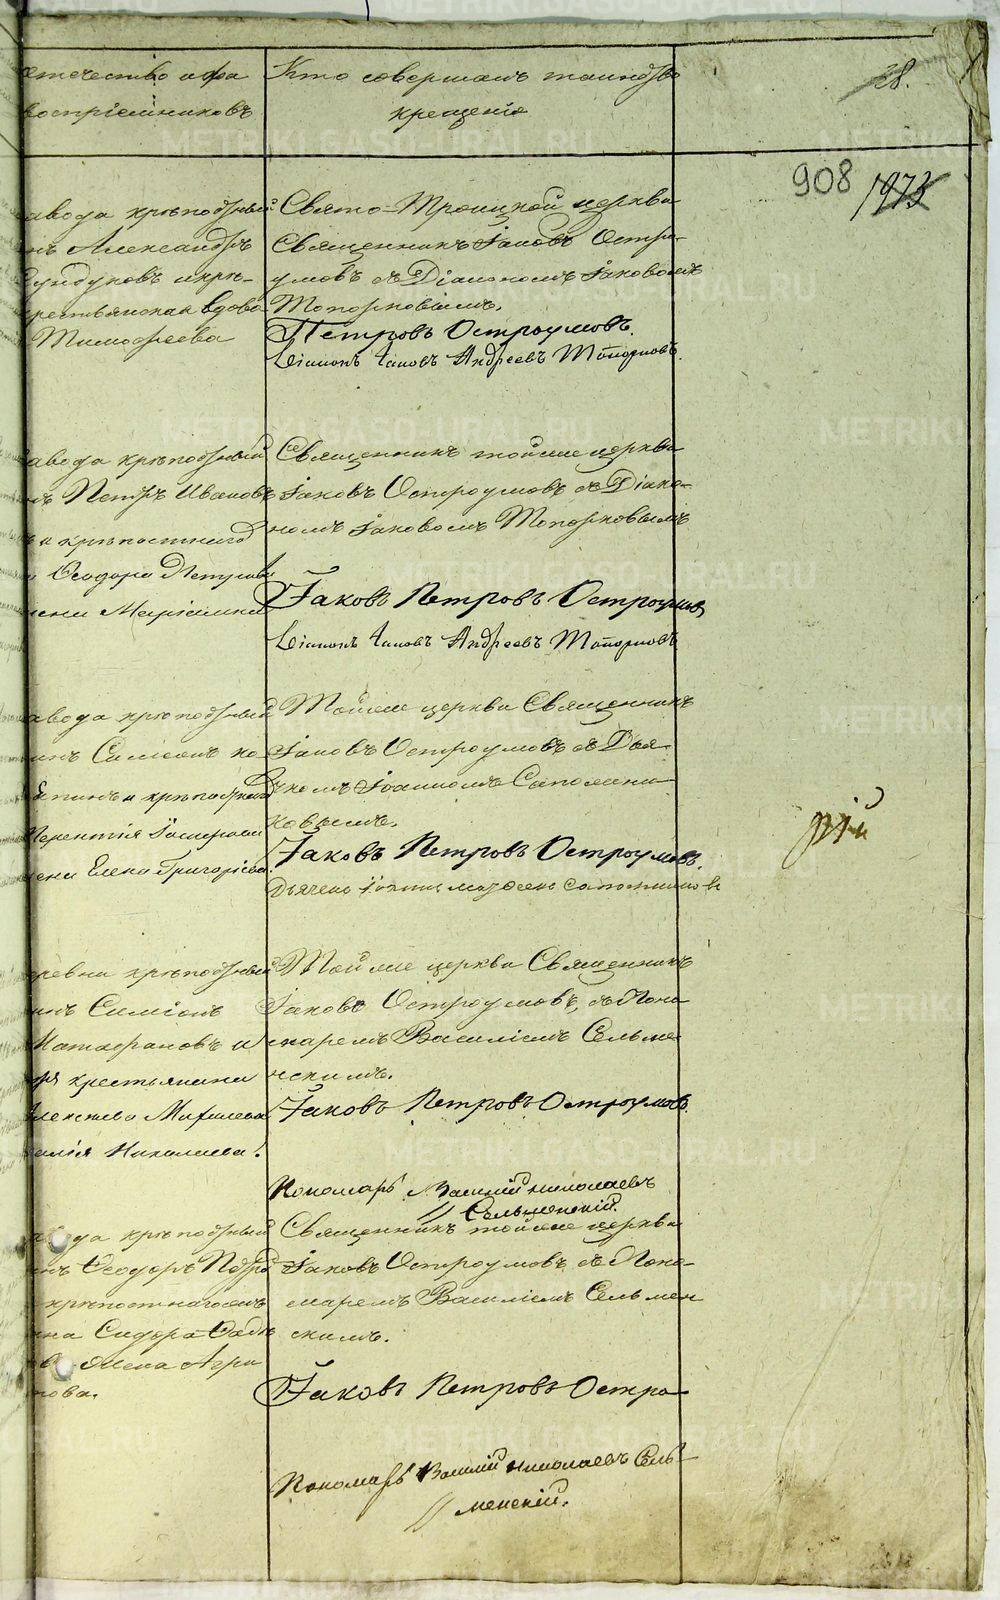 отечество и фа
воспріемниковъ
Кто совершалъ таинство
крещенія
28.
908
1973
авода крѣпостный
нъ Александръ
Сундуковъ и крѣ-
крестьянская вдова
Тимофеева
Свято-Троицкой церкви
Священникъ Іаковъ Остро-
умовъ съ Діакономъ Іаковомъ
Топорковымъ.
Петровъ Остроумовъ.
Діаконъ Іаковъ Андреевъ Топорковъ.
авода крѣпостный
нъ Петръ Ивановъ
и крѣпостнаго
Ѳеодора Петрова
жена
Священникъ тойже церкви
Іаковъ Остроумовъ съ Діако-
номъ Іаковомъ Топорковымъ
Іаковъ Петровъ Остроумовъ
Діаконъ Іаковъ Андреевъ Топорковъ
авода крѣпостный
инъ Симеонъ
и крѣпостнаго
Терентія
жена Елена Григорьева.
Тойже церкви Священникъ
Іаковъ Остроумовъ съ Дья-
чкомъ Іоанномъ Сапожни-
ковымъ.
Іаковъ Петровъ Остроумовъ.
Дьячекъ Іоаннъ Сапожниковъ
ревни крѣпостный
инъ Симеонъ
и
крестьянина
Алексѣева
Николаева.
Тойже церкви Священникъ
Іаковъ Остроумовъ, съ Поно-
маремъ Василіемъ Сельме-
нскимъ.
Іаковъ Петровъ Остроумовъ.
Пономарь Василій Николаевъ
Сельменскій.
вода крѣпостный
инъ Ѳеодоръ Петро
крѣпостнаго
на Сидора
жена Агри
пова.
Священникъ тойже церкви
Іаковъ Остроумовъ съ Поно-
маремъ Василіемъ Сельмен
скимъ.
Іаковъ Петровъ Остро-
Пономарь Василій Николаевъ Сель-
менскій.